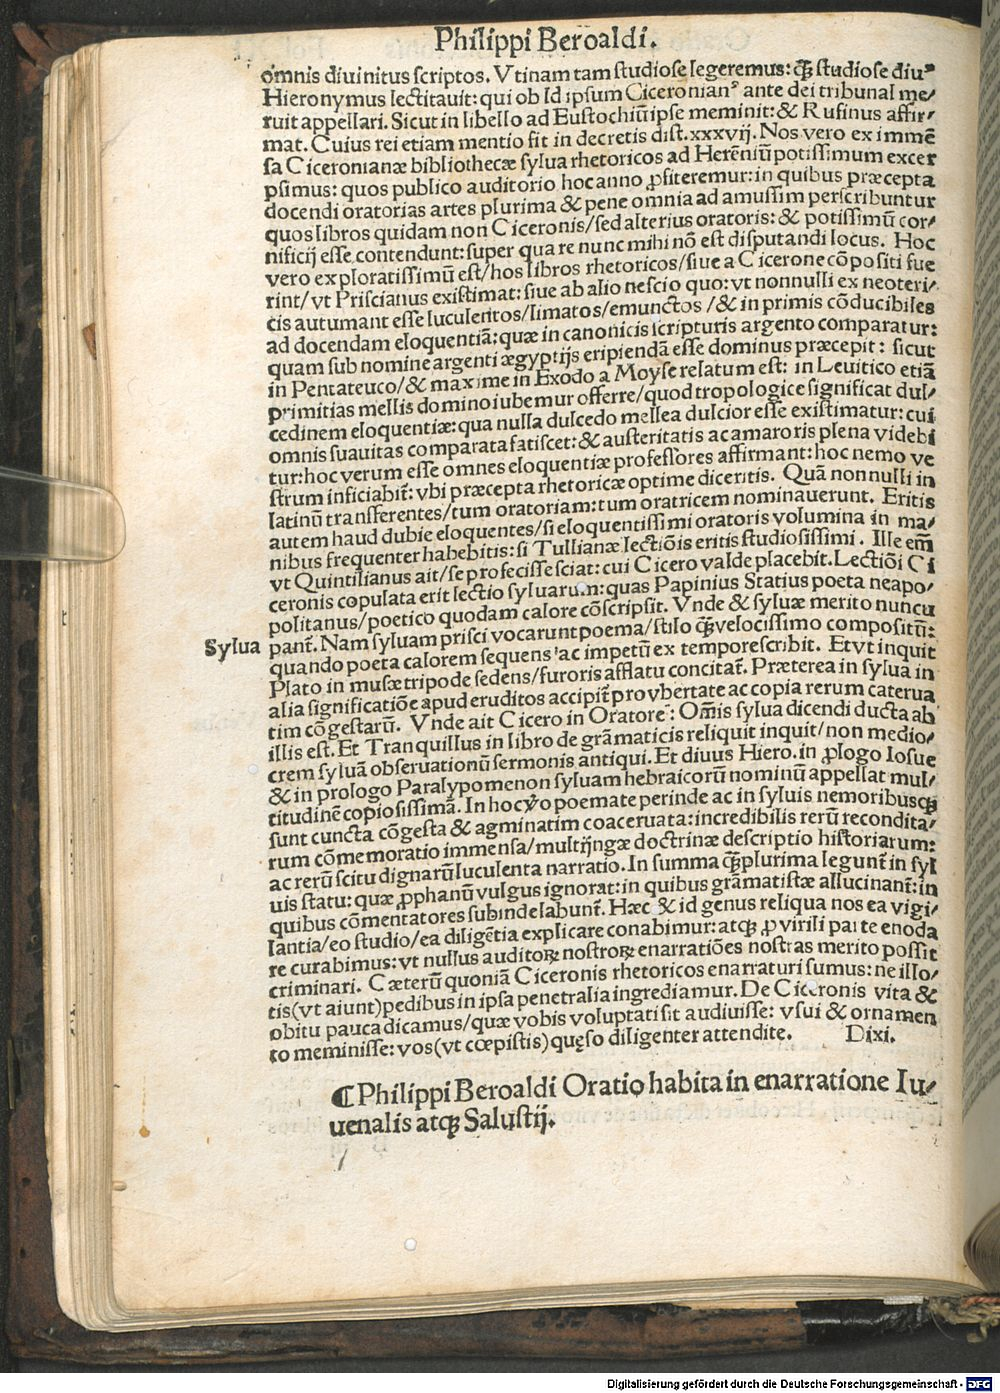 Philippi Beroaldi.
omnis diuinitus scriptos. Vtinam tam studiose legeremus: q̃ȝ studiose diuꝰ
Hieronymus lectitauit: qui ob id ipsum Ciceronianꝰ ante dei tribunal me/
ruit appellari. Sicut in libello ad Eustochiũ ipse meminit: & Rufinus affir/
mat. Cuius rei etiam mentio fit in decretis dist. xxxvij. Nos vero ex immẽ
sa Ciceronianæ bibliothecæ sylua rhetoricos ad Herẽniũ potissimum excer
psimus: quos publico auditorio hoc anno ꝓfiteremur: in quibus præcepta
docendi oratorias artes plurima & pene omnia ad amussim perscribuntur
quos libros quidam non Ciceronis/sed alterius oratoris: & potissimũ cor/
nificij esse contendunt: super qua re nunc mihi nõ est disputandi locus. Hoc
vero exploratissimũ est/hos libros rhetoricos/siue a Cicerone cõpositi fue
rint/vt Priscianus existimat: siue ab alio nescio quo: vt nonnulli ex neoteri/
cis autumant esse luculentos/limatos/emunctos/& in primis cõducibiles
ad docendam eloquentiã: quæ in canonicis scripturis argento comparatur:
quam sub nomine argenti ægyptijs eripiendã esse dominus præcepit: sicut
in Pentateuco/& maxime in Exodo a Moyse relatum est: in Leuitico etiã
primitias mellis domino iubemur offerre/quod tropologice significat dul/
cedinem eloquentiæ: qua nulla dulcedo mellea dulcior esse existimatur: cui
omnis suauitas comparata fatiscet: & austeritatis ac amaroris plena videbi
tur: hoc verum esse omnes eloquentiæ professores affirmant: hoc nemo ve
strum inficiabit̃: vbi præcepta rhetoricæ optime diceritis. Quã nonnulli in
latinũ transferentes/tum oratoriam: tum oratricem nominauerunt. Eritis
autem haud dubie eloquentes/si eloquentissimi oratoris volumina in ma/
nibus frequenter habebitis: si Tullianæ lectiõis eritis studiosissimi. Ille em̃
vt Quintilianus ait/se profecisse sciat: cui Cicero valde placebit. Lectiõi Ci
ceronis copulata erit lectio syluarum: quas Papinius Statius poeta neapo/
politanus/poetico quodam calore cõscripsit. Vnde & syluæ merito nuncu
Sylua pant̃. Nam syluam prisci vocarunt poema/stilo q̃ȝ velocissimo compositũ:
quando poeta calorem sequens ac impetũ ex tempore scribit. Et vt inquit
Plato in musæ tripode sedens/furoris afflatu concitat̃. Præterea in sylua in
alia significatiõe apud eruditos accipit̃ pro vbertate ac copia rerum caterua
tim cõgestarũ. Vnde ait Cicero in Oratore: Om̃is sylua dicendi ducta ab
illis est. Et Tranquillus in libro de grãmaticis reliquit inquit/non medio/
crem syluã obseruationũ sermonis antiqui. Et diuus Hiero. in ꝓlogo Iosue
& in prologo Paralypomenon syluam hebraicorũ nominũ appellat mul/
titudinẽ copiosissimã. In hoc v̊o poemate perinde ac in syluis nemoribusqȝ
sunt cuncta cõgesta & agminatim coaceruata: incredibilis rerũ recondita/
rum cõmemoratio immensa/multijugæ doctrinæ descriptio historiarum:
ac rerũ scitu dignarũ luculenta narratio. In summa q̃ȝplurima legunt̃ in syl
uis statu: quæ ꝓphanũ vulgus ignorat: in quibus grãmatistæ allucinant̃: in
quibus cõmentatores subinde labunt̃. Hæc & id genus reliqua nos ea vigi/
lantia/eo studio/ea diligẽtia explicare conabimur: atqȝ ꝓ virili parte enoda
re curabimus: vt nullus auditoꝝ nostroꝝ enarratiões nostras merito possit
criminari. Cæterũ quoniã Ciceronis rhetoricos enarraturi sumus: ne illo/
tis(vt aiunt)pedibus in ipsa penetralia ingrediamur. De Ciceronis vita &
obitu pauca dicamus/quæ vobis voluptati sit audiuisse: vsui & ornamen
to meminisse: vos(vt cœpistis)quęso diligenter attendite. Dixi.
¶ Philippi Beroaldi Oratio habita in enarratione Iu/
uenalis atqȝ Salustij.
Digitalisierung gefördert durch die Deutsche Forschungsgemeinschaft - DFG